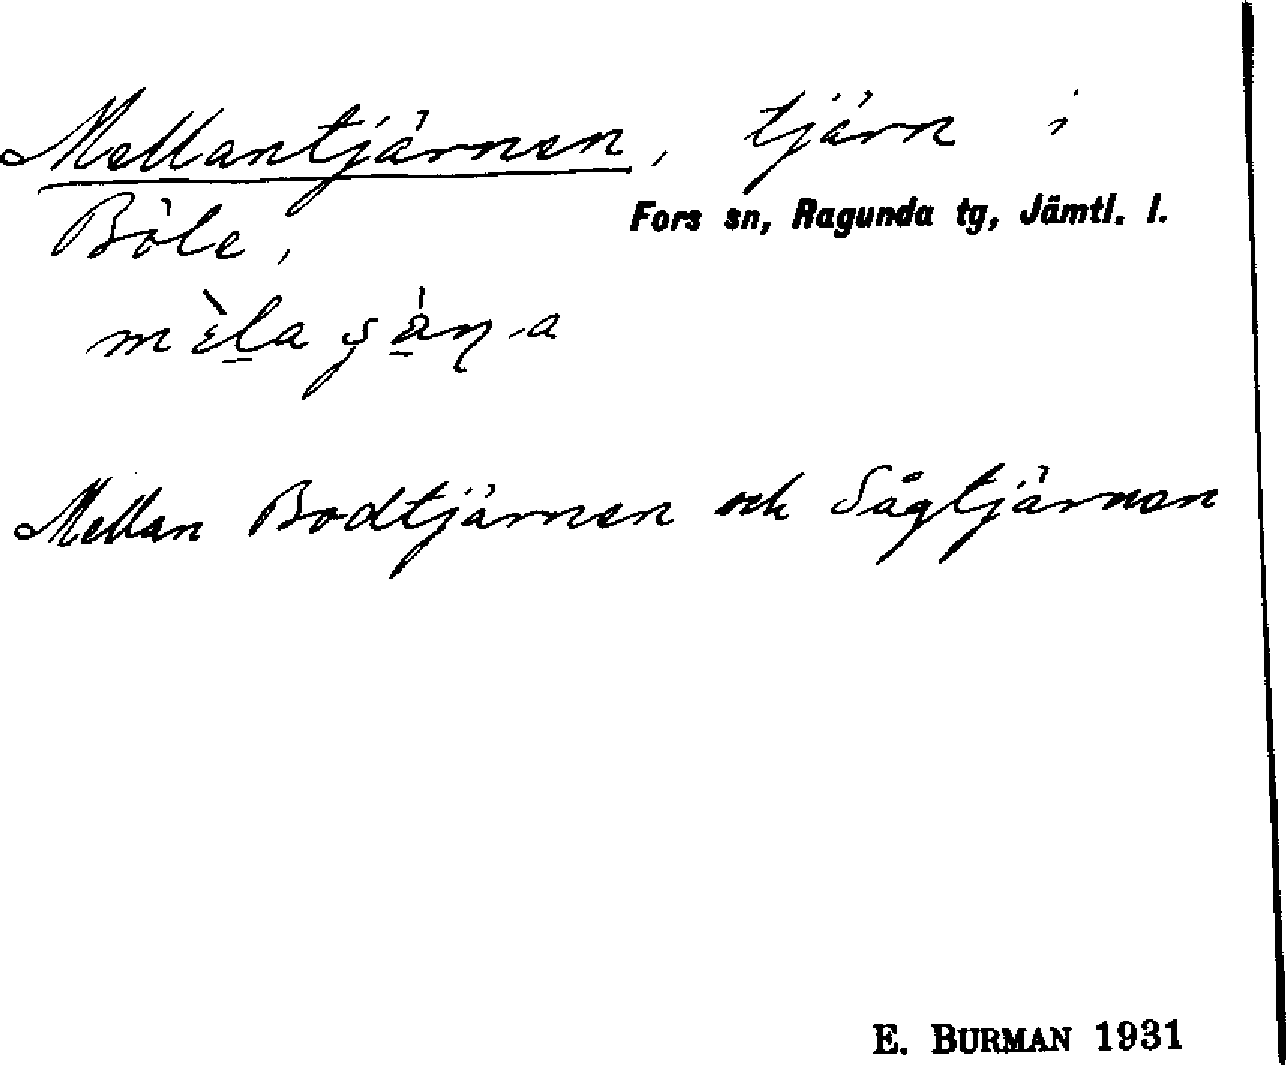 Mellantjärnen, tjärn i
Böle, Fors sn, Ragunda tg, Jämtl. l.
Mellan Bodtjärnen och Sågtjärnen
E. BURMAN 1931